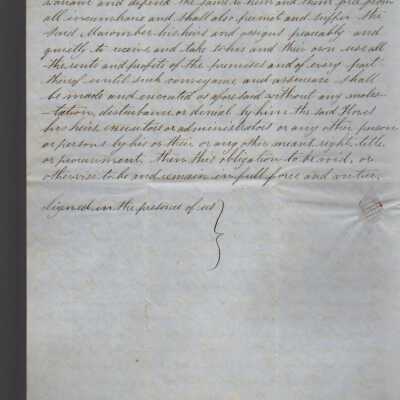 warrant and defend the same to him and them free from
all incumbrans and shall also permit and suffer the
said Macomber his heirs and assigns peaceably and
quietly to receive and take to his and their own use all
the rents and profits of the premises and of every part
thereof until such conveyance and assurance shall
be made and executed as aforesaid without any moles-
-tation, disturbance or denial by him the said Howes
his heirs, executors or administrators or any other person
or persons by his or their or any other means right, title,
or procurement, then this obligation to be void, or
otherwise to be and remain in full force and virtue.
signed in the presence of us